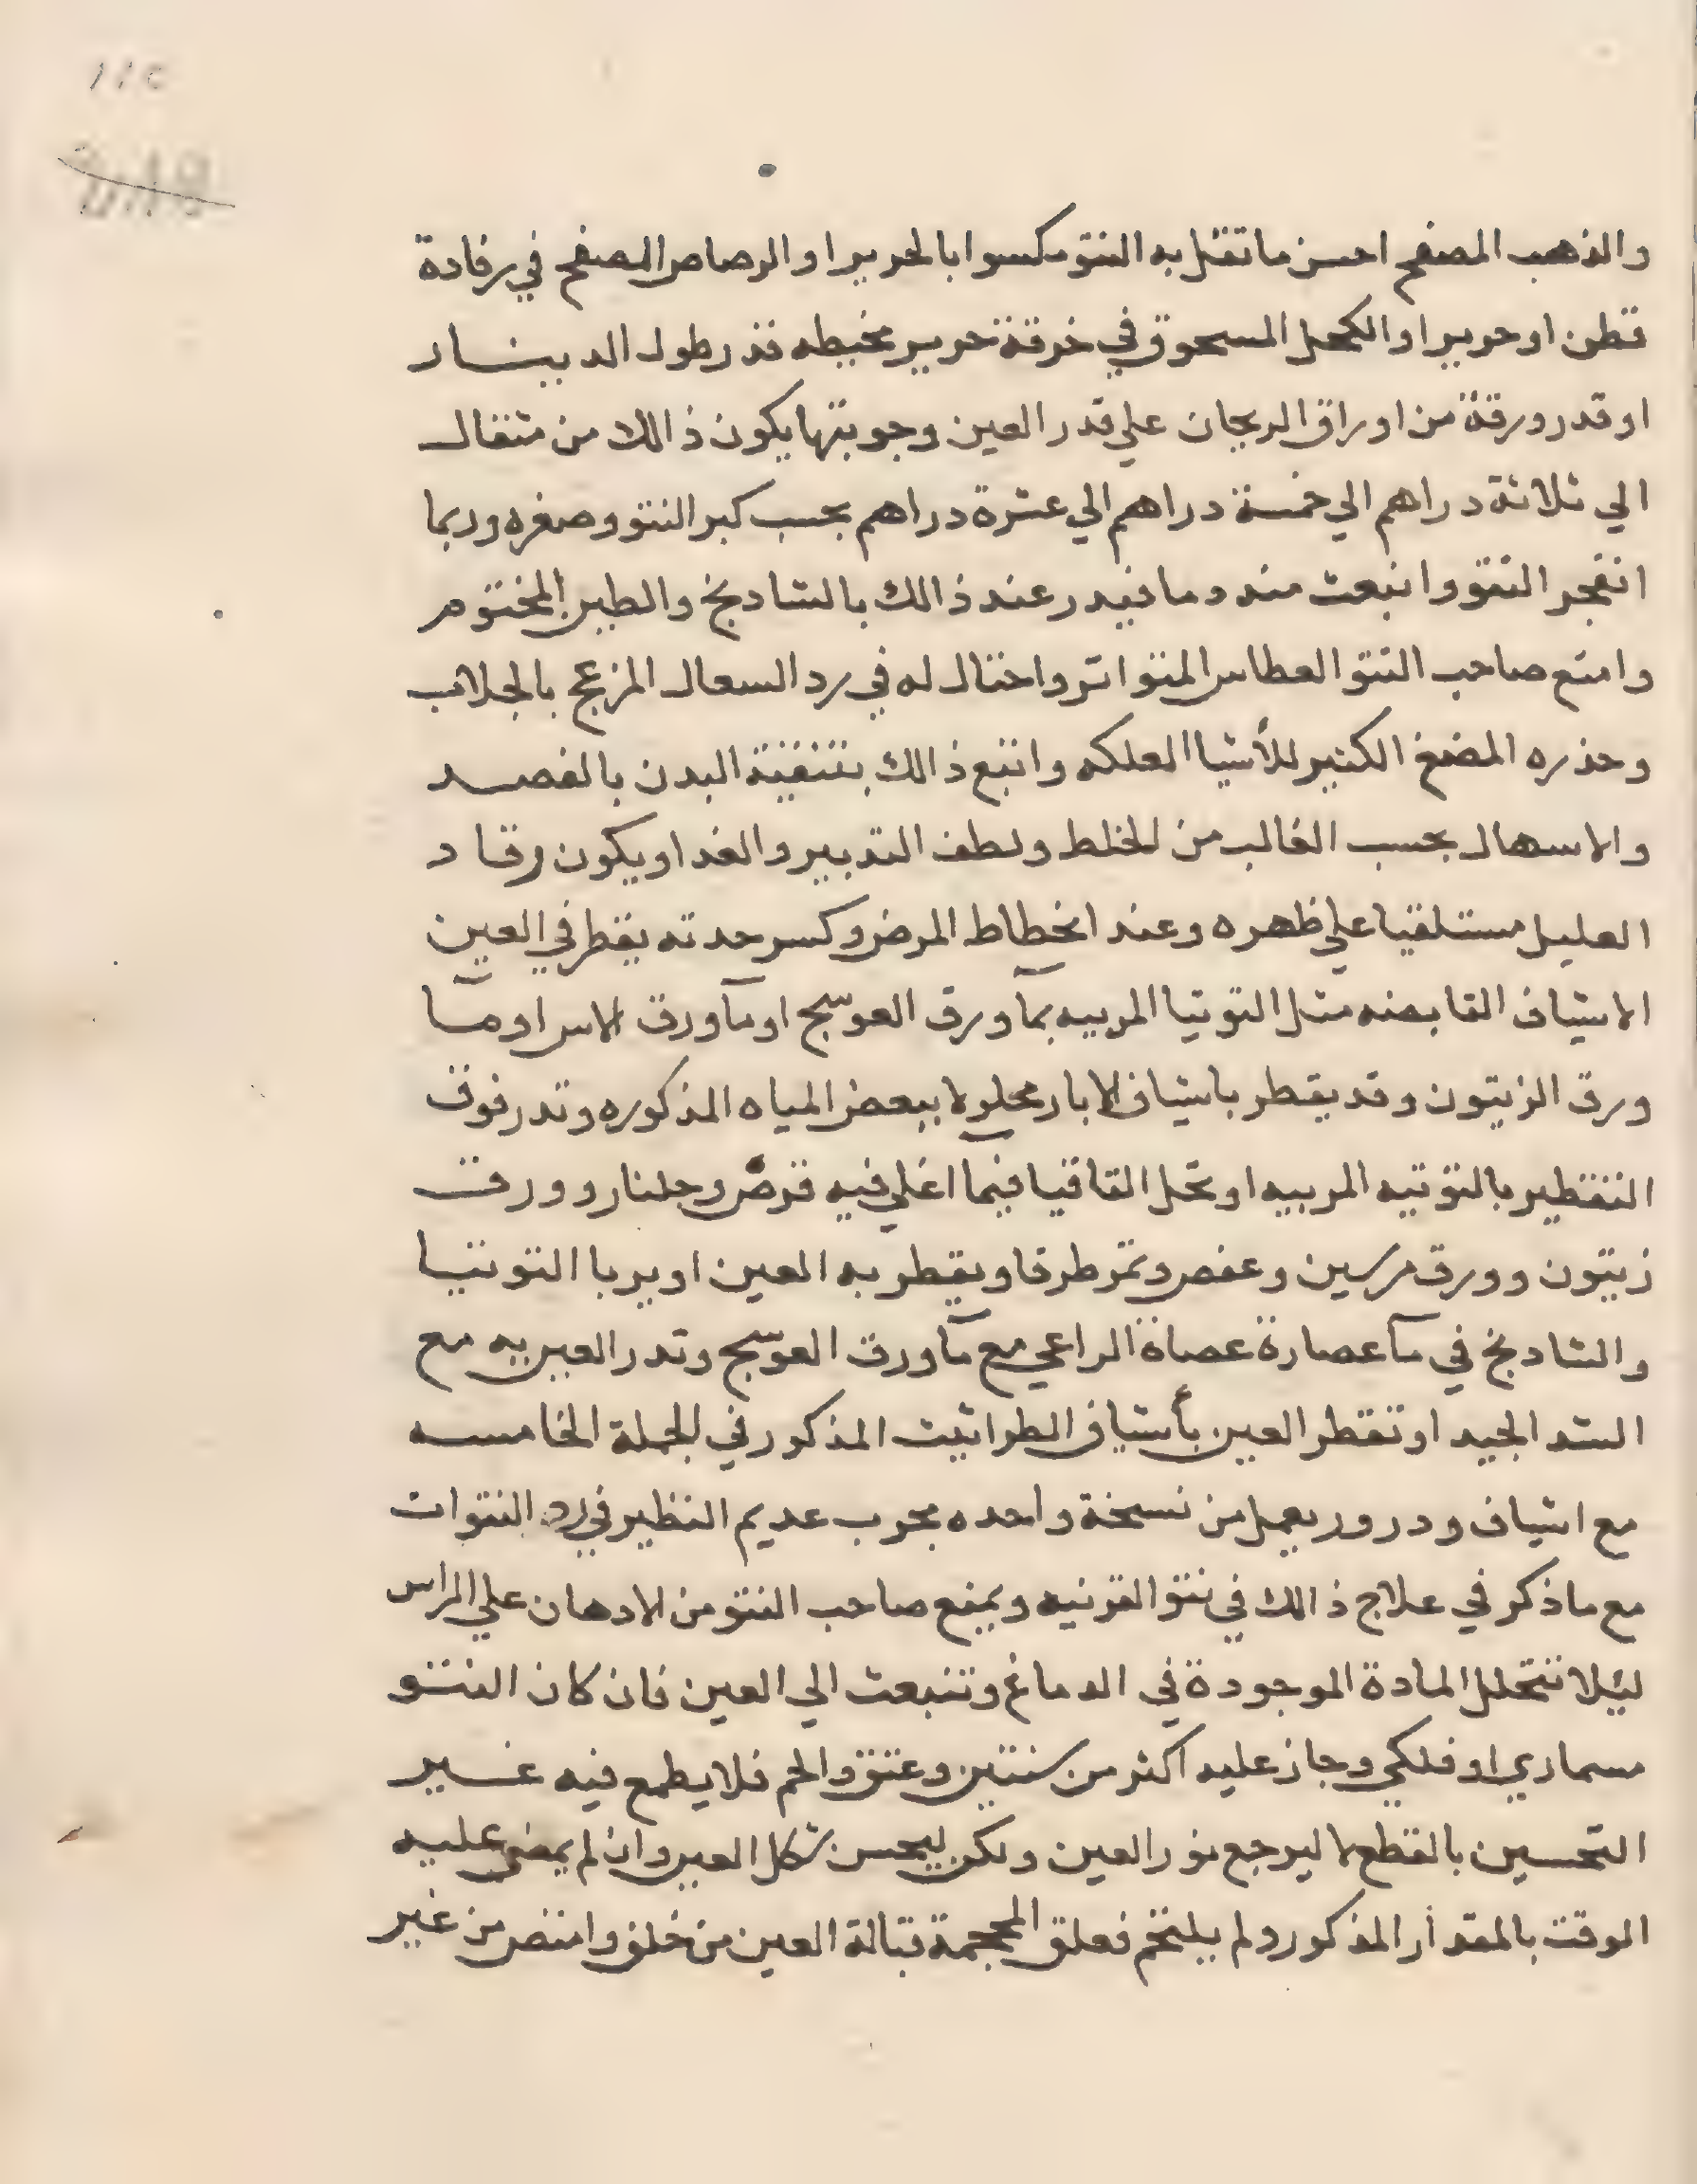 ١١٥
والذهب المصفح احسن ما تقثل به النتو مكسوا بالحرير او الرصاص المصفح في رفادة
قطن او حرير او الكحل المسحوق في خرقة حرير مخيطه قدر طول الدينار
او قدر ورقة من اوراق الريحان علي قدر العين وجوبتها يكون ذالك من مثقال
الي ثلاثة دراهم الي خمسة دراهم الي عشرة دراهم بحسب كبر النتو وصغره وربما
انفجر النتو وانبعث منه دما فيدر عند ذالك بالشادنج والطين المختوم
وامنع صاحب النتو العطاس المتواتر واحتال له في رد السعال المزعج بالجلاب
وحذره المضغ الكثير للأشيا العلكه واتبع ذالك بتنقية البدن بالفصد
والاسهال بحسب الغالب من الخلط ولطف التدبير والغدا ويكون رقاد
العليل مستلقيا علي ظهره وعند انحطاط المرض وكسر حدته يقطر في العين
الاشياف القابضه مثل التوتيا المربيه بمآ ورق العوسج او مآ ورق الاس او مآ
ورق الزيتون وقد يقطر باشياف الابار محلولا ببعض المياه المذكوره وتدر فوق
التقطير بالتوتيه المربيه او تحل القاقيا فيما اغلي فيه قرض وجلنار وورق
زيتون وورق مرسين وعفص وتمر طرفا ويقطر به العين او يربا التوتيا
والشادنج في مآ عصارة عصاة الراعي مع مآ ورق العوسج وتدر العين به مع
الشد الجيد او تقطر العين بأشياف الطراثيث المذكور في الجملة الخامسه
مع اشياف ودرور يعمل من نسخة واحده مجرب عديم النظير في رد النتوات
مع ما ذكر في علاج ذالك في نتو القرنيه ويمنع صاحب النتو من الادهان علي الراس
ليلا تتحلل المادة الموجودة في الدماغ وتنبعث الي العين فان كان النتو
مسماري او فلكي وجاز عليه اكثر من سنتين وعتق والحم فلا يطمع فيه غير
التحسين بالقطع لا ليرجع نور العين ولكن ليحسن شكل العين وان لم يمض عليه
الوقت بالمقدار المذكور ولم يلتحم فعلق المحجمة قبالة العين من خلف وامتص من غير